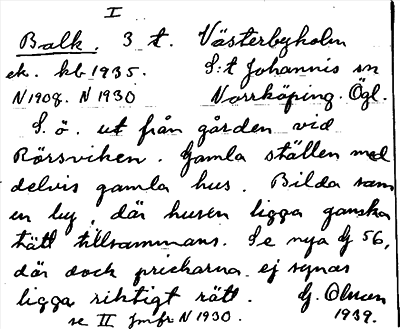 I
Balk. 3 t. Västerbyholm
ek. kb 1935. S:t Johannis sn
N1908. N1930 Norrköping. Ögl.
S. ö. ut från gården vid
Rörsviken. Gamla ställen med
delvis gamla hus. Bilda som
en by, där husen ligga ganska
tätt tillsammans. Se nya G 56,
där dock prickarna ej synas
ligga riktigt rätt. G. Olsson
se II jmfr N1930. 1939.